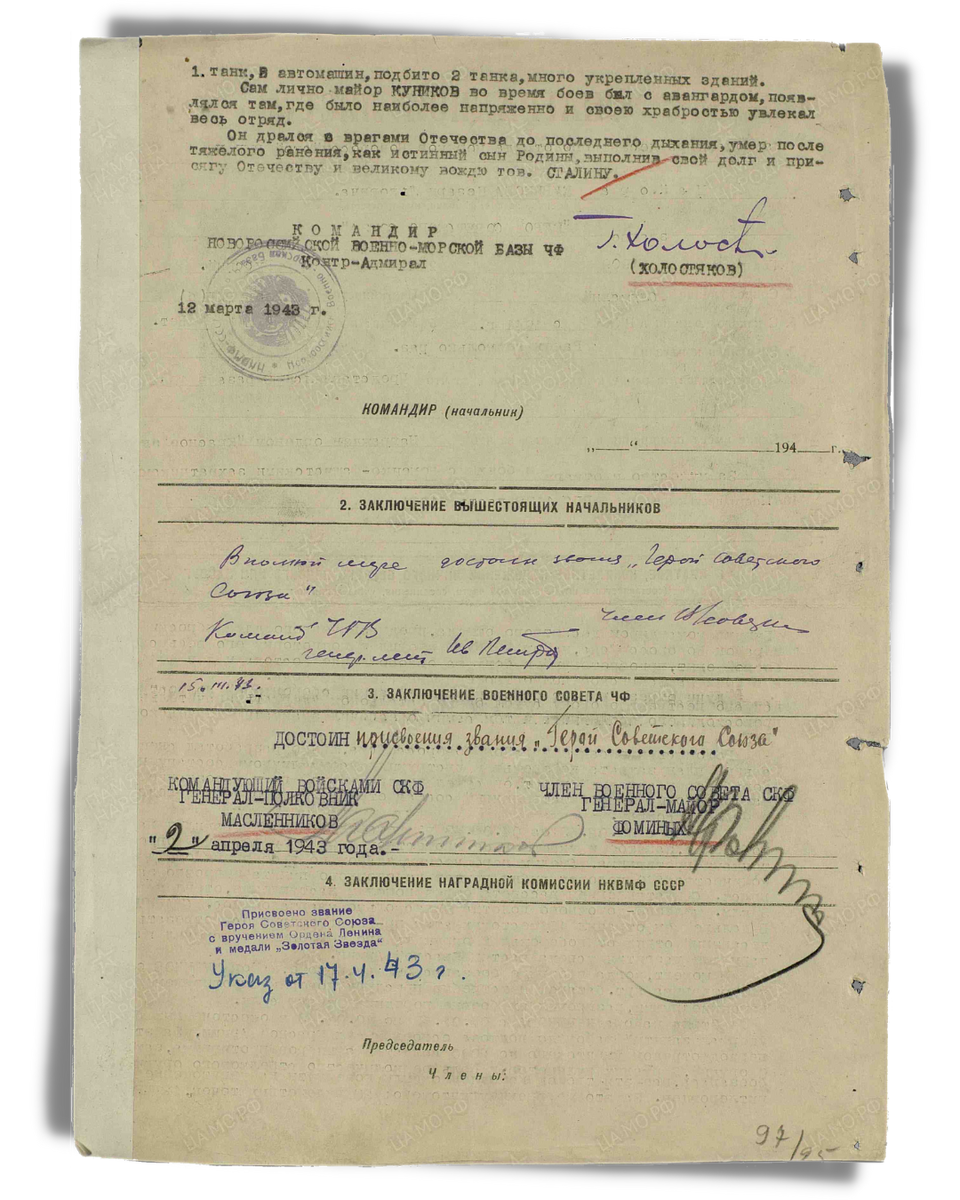 1. танк, 2 автомашин, подбито 2 танка, много укрепленных зданий.
Сам лично майор КУНИКОВ во время боев был с авангардом, появ-
лялся там, где было наиболее напряженно и своею храбростью увлекал
весь отряд.
Он дрался с врагами Отечества до последнего дыхания, умер после
тяжелого ранения, как истинный сын Родины, выполнив свой долг и при-
сягу Отечеству и великому вождю тов. СТАЛИНУ.
КОМАНДИР
НОВОРОССИЙСКОЙ ВОЕННО-МОРСКОЙ БАЗЫ ЧФ
Контр-Адмирал
Г. Холост
(ХОЛОСТЯКОВ)
12 марта 1943 г.
КОМАНДИР (начальник)
„ “ 194 г.
2. ЗАКЛЮЧЕНИЕ ВЫШЕСТОЯЩИХ НАЧАЛЬНИКОВ
В полной мере достоин звания „Герой Советского
Союза"
Команд ЧГВ
генер. лейт Ив Петров
Член
15.III.43.
3. ЗАКЛЮЧЕНИЕ ВОЕННОГО СОВЕТА ЧФ
ДОСТОИН присвоения звания „Герой Советского Союза"
КОМАНДУЮЩИЙ ВОЙСКАМИ СКФ
ГЕНЕРАЛ-ПОЛКОВНИК
МАСЛЕННИКОВ
"2" апреля 1943 года.-
ЧЛЕН ВОЕННОГО СОВЕТА СКФ
ГЕНЕРАЛ-МАЙОР
ФОМИНЫХ
4. ЗАКЛЮЧЕНИЕ НАГРАДНОЙ КОМИССИИ НКВМФ СССР
Присвоено звание
Героя Советского Союза
с вручением Ордена Ленина
и медали „Золотая Звезда"
Указ от 17.4.43 г.
Председатель
Члены:
97/95
ЦАМО.РФ